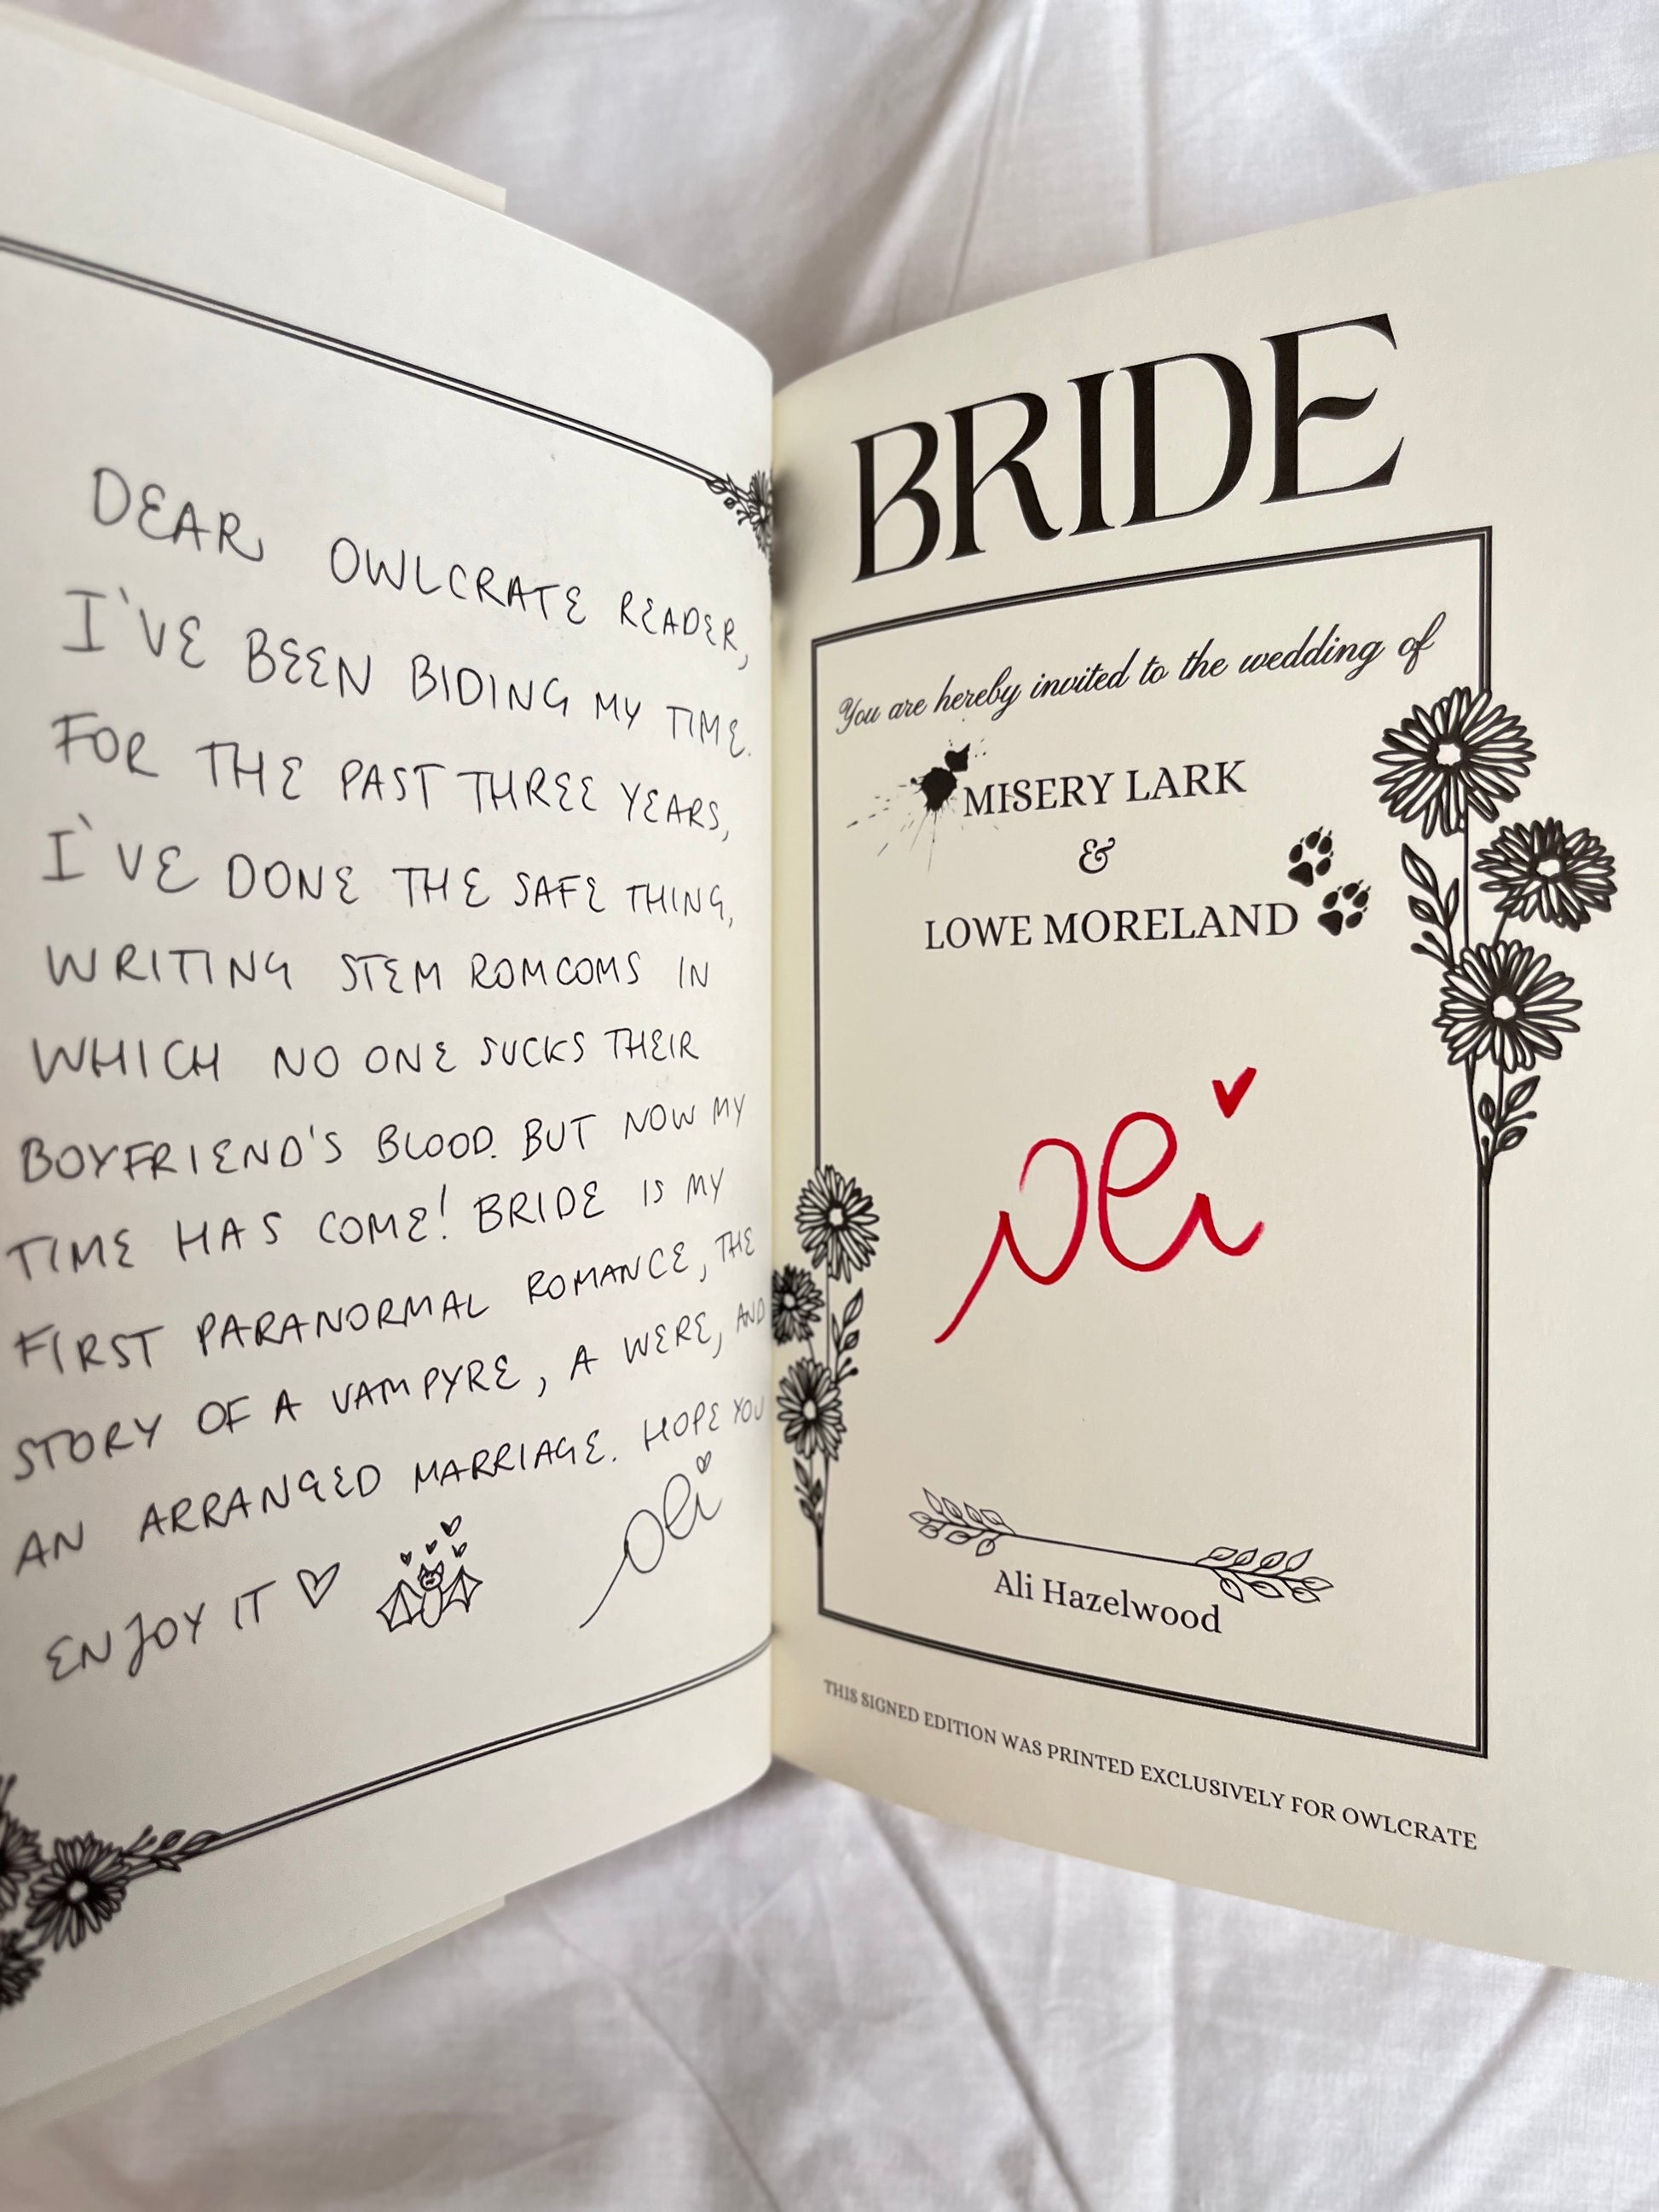 DEAR OWLCRATE READER,
I'VE BEEN BIDING MY TIME.
FOR THE PAST THREE YEARS,
I'VE DONE THE SAFE THING,
WRITING STEM ROMCOMS IN
WHICH NO ONE SUCKS THEIR
BOYFRIEND'S BLOOD. BUT NOW MY
TIME HAS COME! BRIDE IS MY
FIRST PARANORMAL ROMANCE, THE
STORY OF A VAMPYRE, A WERE, AND
AN ARRANGED MARRIAGE. HOPE YOU
ENJOY IT
Ali
BRIDE
You are hereby invited to the wedding of
MISERY LARK
&
LOWE MORELAND
Ali
Ali Hazelwood
THIS SIGNED EDITION WAS PRINTED EXCLUSIVELY FOR OWLCRATE